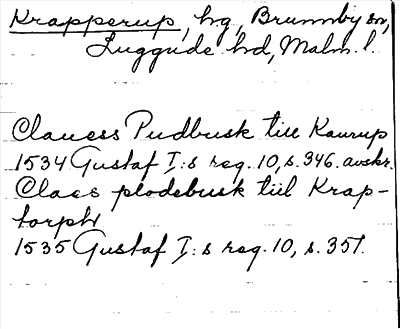 Krapperup, hg, Brunnby sn,
Luggude hd, Malm. l.
Clauess Pudbusk till Kaurup
1534 Gustaf I:s reg. 10, s. 346. avskr.
Claes plodebusk tiil Krap-
torph
1535 Gustaf I:s reg. 10, s. 351.